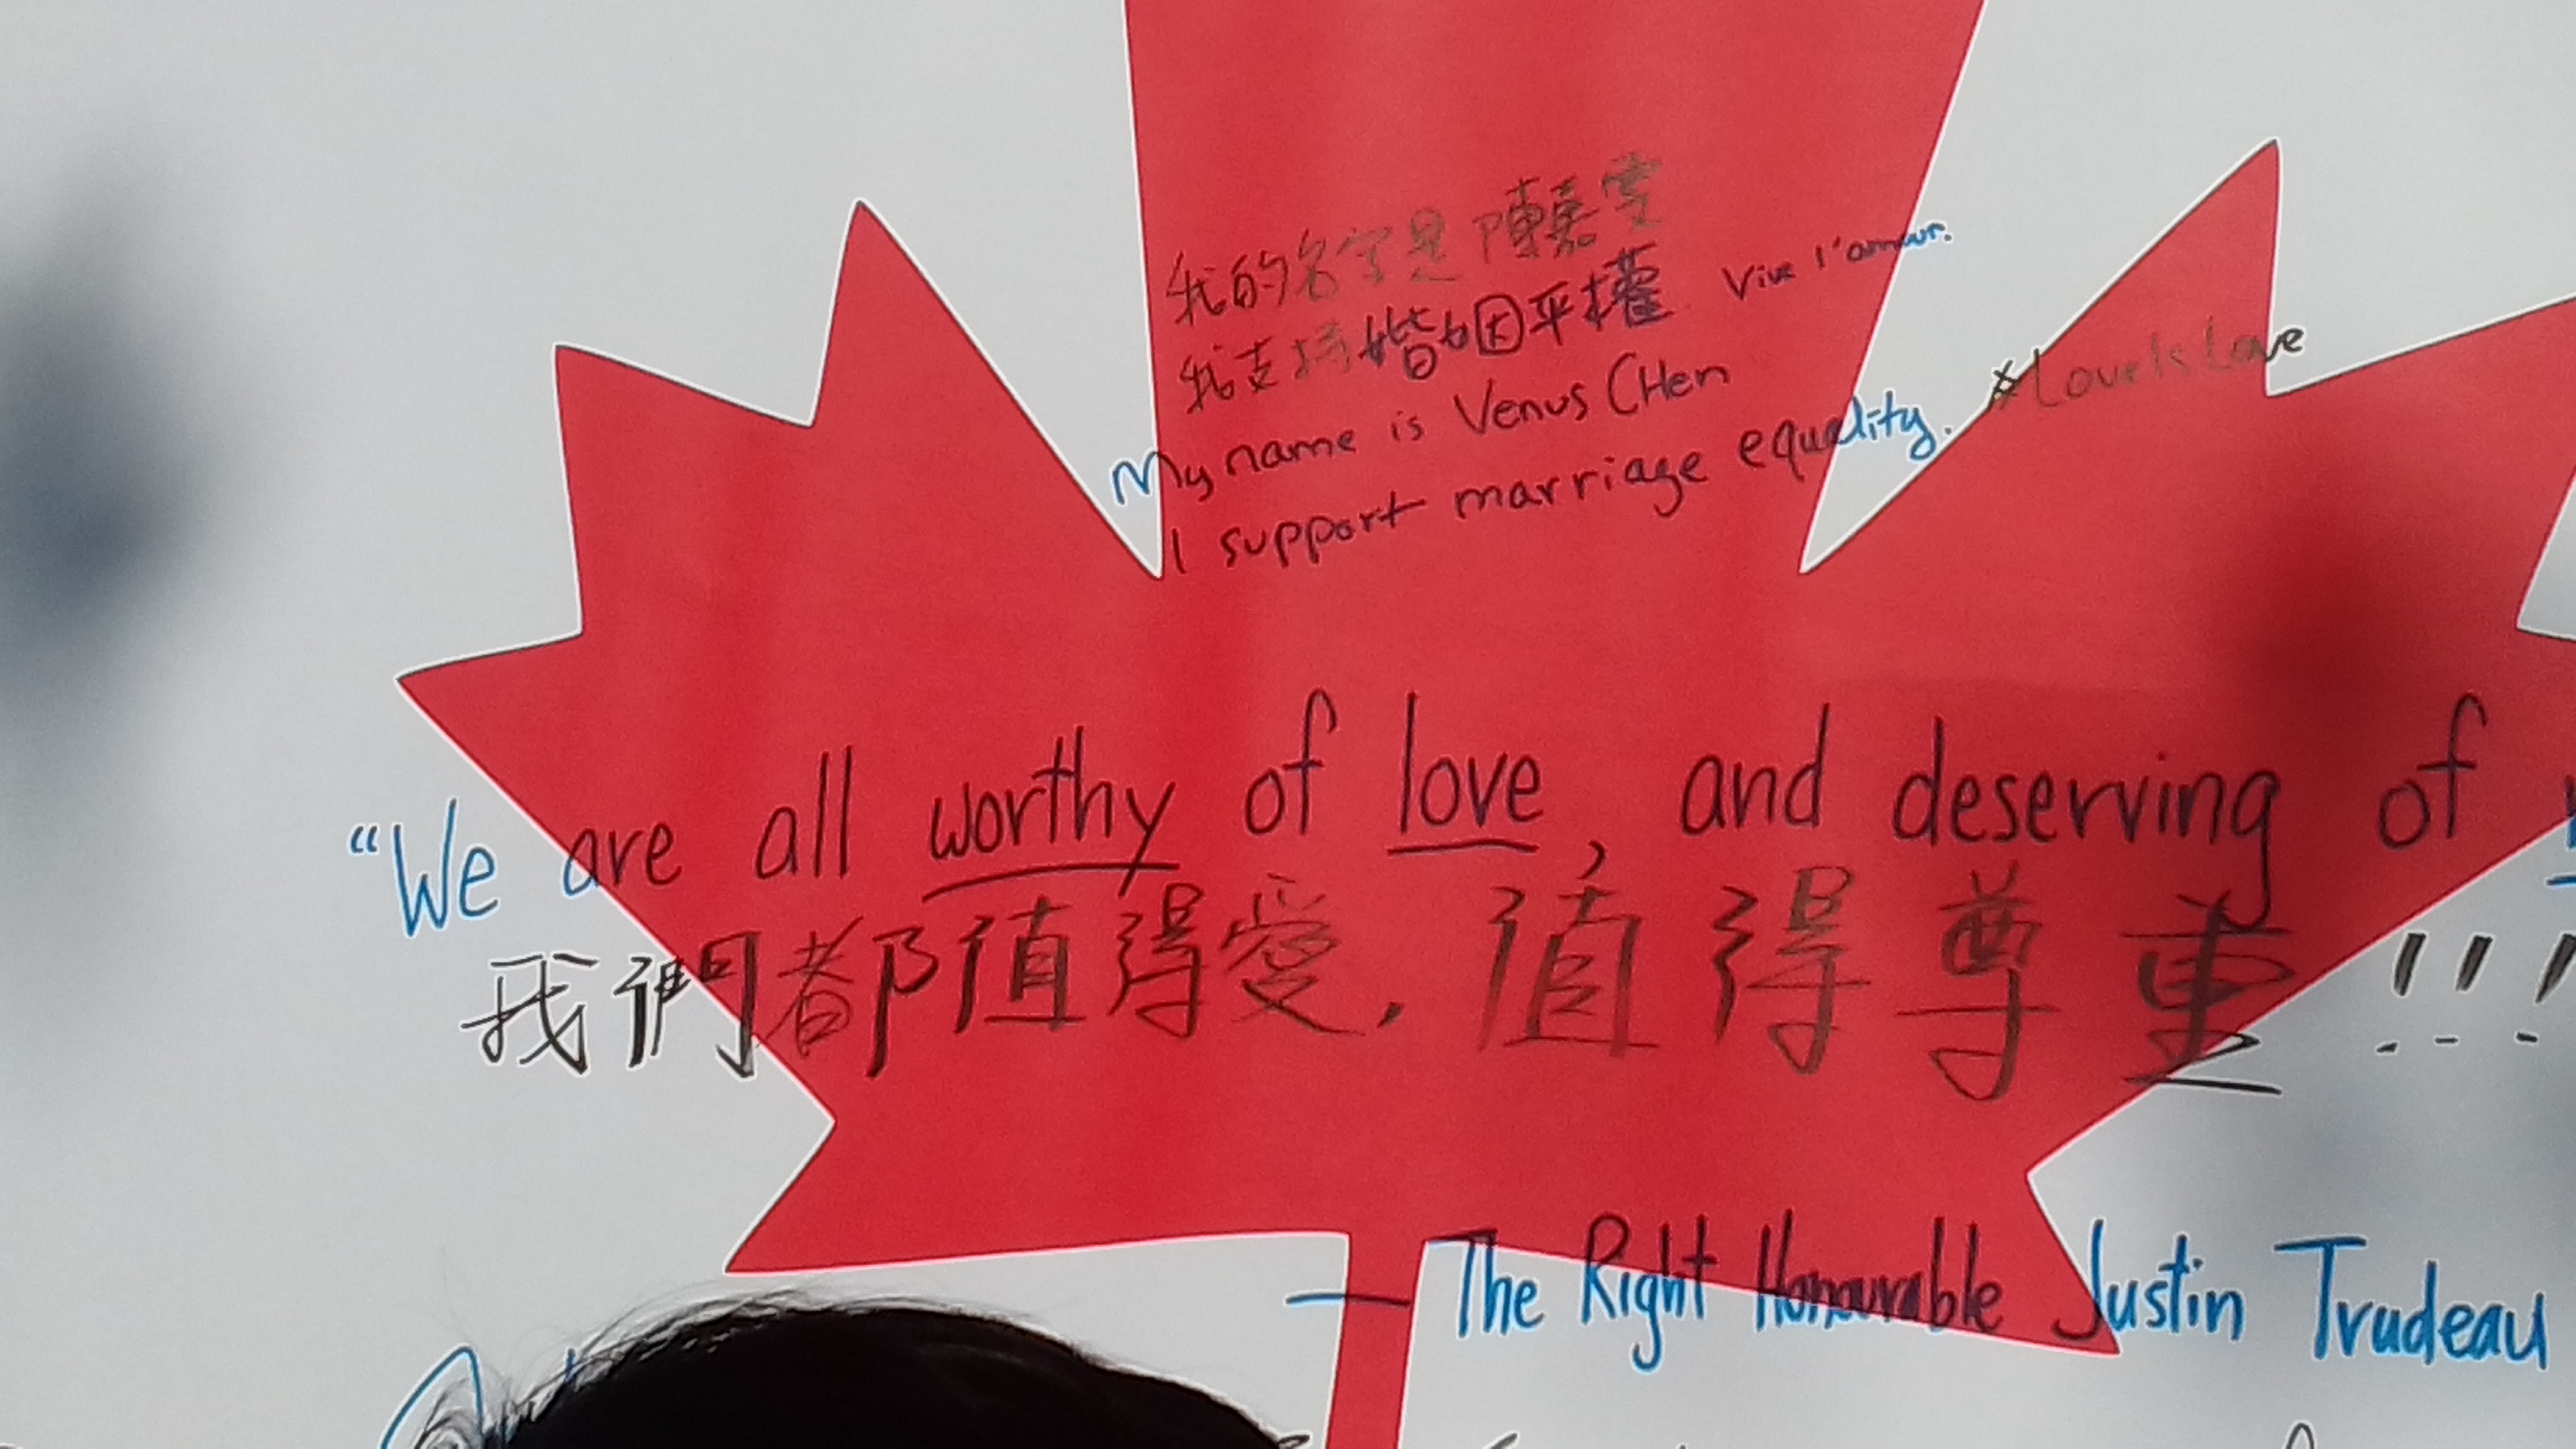 我的名字是陳嘉雯
我支持婚姻平權 Vive l'amour.
My name is Venus CHen
I support marriage equality. #LoveIsLove
"We are all worthy of love, and deserving of
我們都值得愛，值得尊重!!!
— The Right Honourable Justin Trudeau